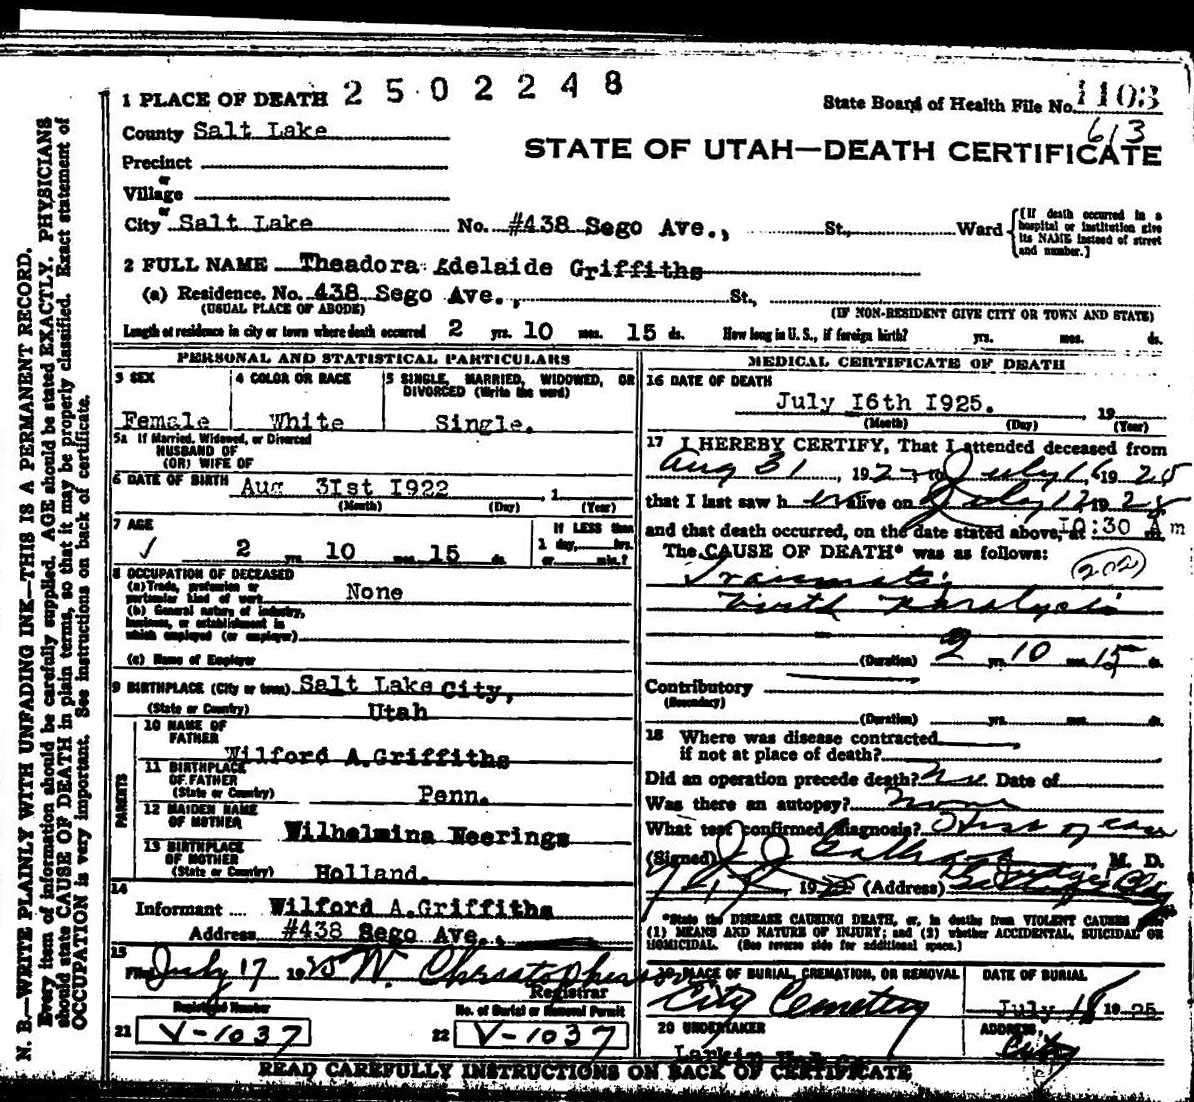 1 PLACE OF DEATH 2502248
State Board of Health File No. 1103
County Salt Lake
613
STATE OF UTAH—DEATH CERTIFICATE
Precinct
or
Village
or
City Salt Lake No. #438 Sego Ave., St., Ward {[If death occurred in a hospital or institution give its NAME instead of street and number.]
2 FULL NAME Theadora Adelaide Griffiths
(a) Residence. No. 438 Sego Ave., St.,
(USUAL PLACE OF ABODE) (IF NON-RESIDENT GIVE CITY OR TOWN AND STATE)
Length of residence in city or town where death occurred 2 yrs. 10 mos. 15 ds. How long in U. S., if foreign birth? yrs. mos. ds.
PERSONAL AND STATISTICAL PARTICULARS
3 SEX
Female
4 COLOR OR RACE
White
5 SINGLE, MARRIED, WIDOWED, OR
DIVORCED (Write the word)
Single.
5a If Married, Widowed, or Divorced
HUSBAND OF
(OR) WIFE OF
6 DATE OF BIRTH Aug 3Ist I922 , 1
(Month) (Day) (Year)
7 AGE
2 yrs. 10 mos. 15 ds.
IF LESS than
1 day, hrs.
or min.?
8 OCCUPATION OF DECEASED
(a) Trade, profession or
particular kind of work None
(b) General nature of industry,
business, or establishment in
which employed (or employer)
(c) Name of Employer
9 BIRTHPLACE (City or town) Salt Lake City,
(State or Country) Utah
PARENTS
10 NAME OF
FATHER
Wilford A.Griffiths
11 BIRTHPLACE
OF FATHER
(State or Country) Penn.
12 MAIDEN NAME
OF MOTHER Wilhelmina Neerings
13 BIRTHPLACE
OF MOTHER
(State or Country) Holland.
14
Informant Wilford A.Griffiths
Address #438 Sego Ave.,
15
Filed July 17 1925 W. Christopherson
Registrar
Registered Number
21 V-1037
No. of Burial or Removal Permit
22 V-1037
MEDICAL CERTIFICATE OF DEATH
16 DATE OF DEATH
July I6th I925. , 19
(Month) (Day) (Year)
17 I HEREBY CERTIFY, That I attended deceased from
Aug 31, 192 to July 16 1925
that I last saw h er alive on July 12 1925
and that death occurred, on the date stated above, at I0:30 A m
The CAUSE OF DEATH* was as follows:
Traumatic
Birth Paralysis
(Duration) 2 yrs. 10 mos. 15 ds.
Contributory
(Secondary)
(Duration) yrs. mos. ds.
18 Where was disease contracted
if not at place of death?
Did an operation precede death? no. Date of
Was there an autopsy? none
What test confirmed diagnosis? of case
(Signed) , M. D.
, 1925 (Address) Judge Bldg
*State the DISEASE CAUSING DEATH, or, in deaths from VIOLENT CAUSES
(1) MEANS AND NATURE OF INJURY; and (2) whether ACCIDENTAL, SUICIDAL OR
HOMICIDAL. (See reverse side for additional space.)
19 PLACE OF BURIAL, CREMATION, OR REMOVAL
City Cemetery
DATE OF BURIAL
July 18 1925
20 UNDERTAKER
Larkin
ADDRESS,
City
READ CAREFULLY INSTRUCTIONS ON BACK OF CERTIFICATE
N. B.—WRITE PLAINLY WITH UNFADING INK—THIS IS A PERMANENT RECORD.
Every item of information should be carefully supplied. AGE should be stated EXACTLY. PHYSICIANS
should state CAUSE OF DEATH in plain terms, so that it may be properly classified. Exact statement of
OCCUPATION is very important. See instructions on back of certificate.